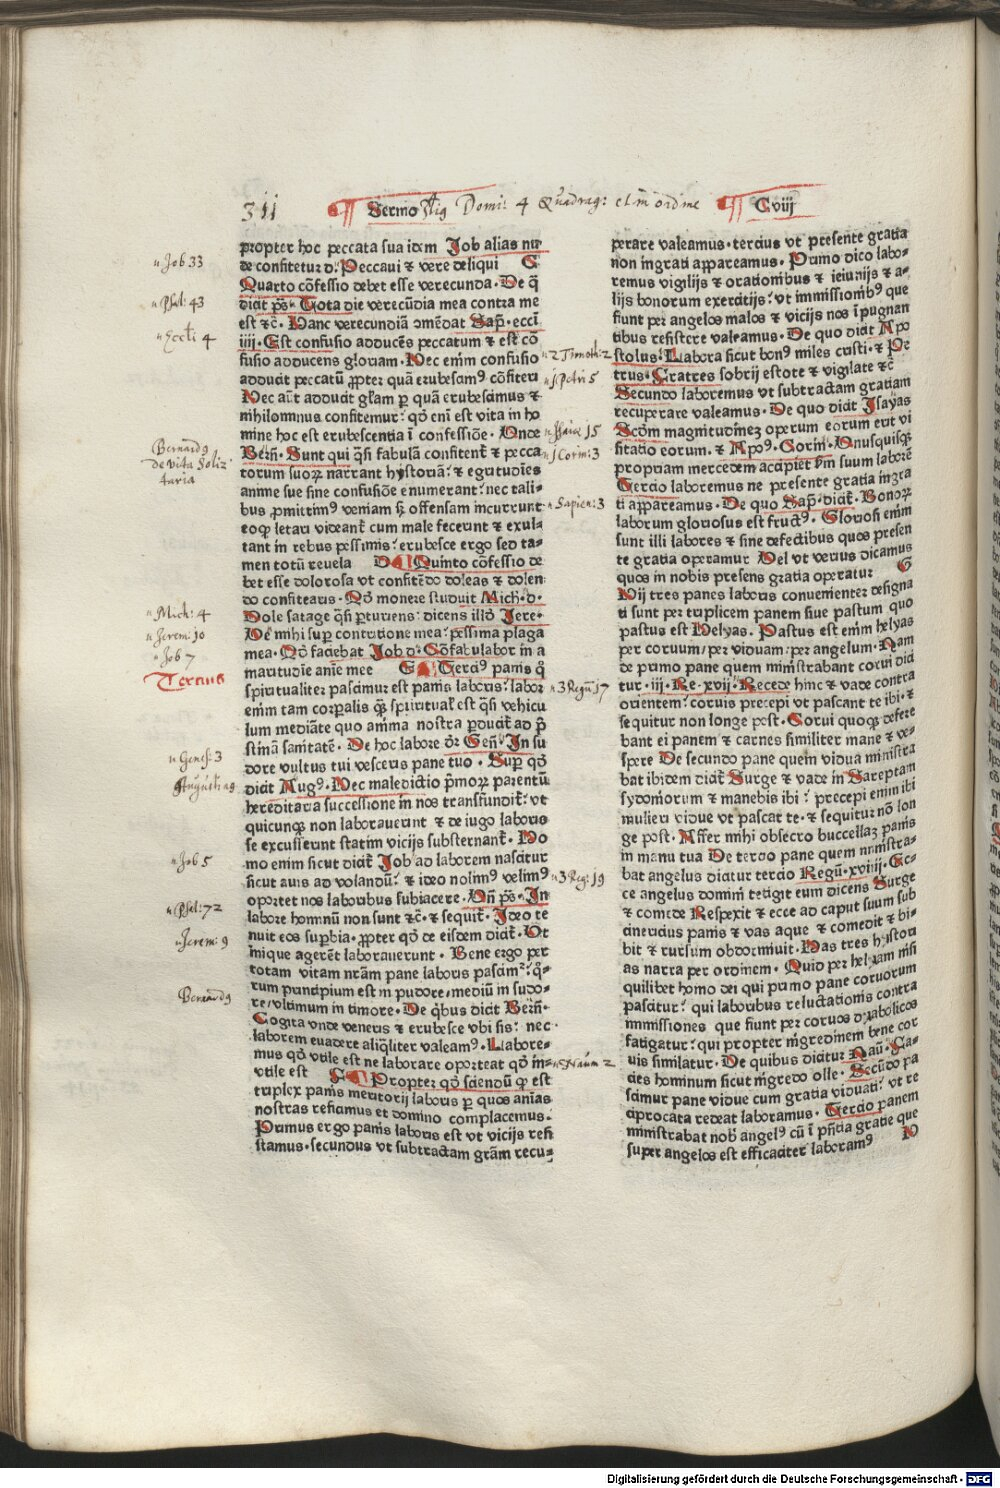 311 Sermo Domi: 4 Quadrag: Cviij
propter hoc peccata sua idem Job alias nu⸗
de confitetur d: Peccaui ⁊ vere deliqui C
Quarto cōfessio debet esse verecunda. De q̄
dicit ps̄. Tota die verecūdia mea contra me
est ⁊c̄. Hanc verecundiā ↄmēdat Sap. ecci
iiij. Est confusio adducēs peccatum ⁊ est cō
fusio adducens gloriam. Nec enim confusio
adducit peccatū ꝓpter quā erubescimꝰ cōfiteri
Nec aūt adducit gl̄am ꝑ quā erubescimus ⁊
nihilominus confitemur: qd̄ eni est vita in ho
mine hoc est erubescentia ī confessiōe. Unde
Bern̄. Sunt qui q̄si fabulā confitent̄ ⁊ pecca
torum suoꝝ narrant hystoriā: ⁊ egritudies
anime sue sine confusiōe enumerant: nec tali⸗
bus ꝓmittimꝰ veniam sꝫ offensam incurrunt
eoqꝫ letari videant̄ cum male fecerint ⁊ exul⸗
tant in rebus pessimis: erubesce ergo sed ta⸗
men totū reuela D Quinto cōfessio de
bet esse dolorosa vt confitēdo doleas ⁊ dolen
do confitearis. Qd̄ monere studuit Mich. d.
Dole satage q̄si ꝑturiens: dicens illd̄ Jere.
De mihi suꝑ contritione mea: pessima plaga
mea. Qd̄ faciebat Job d: Cōfabulabor in a
maritudie anie mee E Terciꝰ panis q̄
spiritualiter pascimur est panis laboris: labor
enim tam corꝑalis qꝫ spiritual' est q̄si vehicu
lum mediāte quo anima nostra ꝑducit̄ ad p̄
stinā sanitatē. De hoc labore dr̄ Gen̄. In su
dore vultus tui vesceris pane tuo. Suꝑ qd̄
dicit Augꝰ. Nec maledictio p̄moꝝ parentū
hereditaria successione in nos transfundit̄: vt
quicunqꝫ non laborauerint ⁊ de iugo laboris
se excusserint statim vicijs substernant̄. Ho
mo enim sicut dicit̄ Job ad laborem nascitur
sicut auis ad volandū: ⁊ ideo nolimꝰ velimꝰ
oportet nos laboribus subiacere. Un̄ ps̄. In
labore hominū non sunt ⁊c̄. ⁊ sequit̄. Ideo te
nuit eos suꝑbia. ꝓpter qd̄ de eisdem dicit̄. Ut
inique agerēt laborauerunt. Bene ergo per
totam vitam nr̄am pane laboris pascim². q̄⸗
rum principium est in pudore. mediū in sudo⸗
re. vltimum in timore. De q̄bus dicit Bern̄.
Cogita vnde veneris ⁊ erubesce vbi sis: nec
laborem euadere aliq̄liter valeamꝰ. Labore⸗
mus qd̄ vtile est ne laborare oporteat qd̄ in⸗
vtile est F Propter qd̄ sciendū ꝙ est
triplex panis meritorij laboris ꝑ quos anīas
nostras reficimus et domino complacemus.
Primus ergo panis laboris est vt vicijs resi
stamus. secundus vt subtractam grām recu⸗
perare valeamus. tercius vt presente gratia
non ingrati appareamus. Primo dico labo⸗
remus vigilijs ⁊ orationibus ⁊ ieiunijs ⁊ a⸗
lijs bonorum exercitijs: vt immissionibꝰ que
fiunt per angelos malos ⁊ vicijs nos ī pugnan
tibus resistere valeamus. De quo dicit Apo
stolus: Labora sicut bonꝰ miles cristi. ⁊ Pe
trus. Fratres sobrij estote ⁊ vigilate ⁊c̄
Secundo laboremus vt subtractam gratiam
recuperare valeamus. De quo dicit Isayas
Scd̄m magnitudinez operum eorum erit vi
sitatio eorum. ⁊ Apoꝰ. Corin̄. Unusquisqꝫ
propriam mercedem accipiet s̄m suum laborē
Tercio laboremus ne presente gratia ingra
ti appareamus. De quo Sap. dicit̄. Bonoꝝ
laborum gloriosus est fructꝰ. Gloriosi enim
sunt illi labores ⁊ sine defectibus quos presen
te gratia operamur Uel vt verius dicamus
quos in nobis presens gratia operatur G
Hij tres panes laboris conuenienter designa
ti sunt per triplicem panem siue pastum quo
pastus est Helyas. Pastus est enim helyas
per coruum: per viduam: per angelum. Nam
de primo pane quem ministrabant corui dici
tur. iij. Re. xvij. Recede hinc ⁊ vade contra
orientem: coruis precepi vt pascant te ibi. ⁊
sequitur non longe post. Corui quoqꝫ defere
bant ei panem ⁊ carnes similiter mane ⁊ ve⸗
spere De secundo pane quem vidua ministra
bat ibidem dicit̄ Surge ⁊ vade in Sareptam
sydoniorum ⁊ manebis ibi: precepi enim ibi
mulieri vidue vt pascat te. ⁊ sequitur nō lon
ge post. Affer mihi obsecro buccellaz panis
in manu tua De tercio pane quem ministra⸗
bat angelus dicitur tercio Regū. xviiij. Ec⸗
ce angelus domini tetigit eum dicens Surge
⁊ comede Respexit ⁊ ecce ad caput suum sub
cinericius panis ⁊ vas aque ⁊ comedit ⁊ bi⸗
bit ⁊ rursum obdormiuit. Has tres hystori
as narra per ordinem. Quid per helyam nisi
quilibet homo dei qui primo pane coruorum
pascitur: qui laboribus reluctationis contra
immissiones que fiunt per coruos dyabolicos
fatigatur: qui propter ingredinem bene cor
uis similatur. De quibus dicitur Nau. Fa⸗
cies hominum sicut nigredo olle. Secūdo pa
scimur pane vidue cum gratia viduati: vt re
ciprocata redeat laboramus. Tercio panem
ministrabat nob̄ angelꝰ cū ī p̄ntia gratie que
super angelos est efficaciter laboramꝰ H
Job 33
Psal: 43
Eccli 4
Bernardꝰ
de vita Soli
taria
Mich: 4
Jerem: 10
Job 7
Tercius
Genes: 3
Augustinꝰ
Job 5
Psal: 72
Jerem: 9
Bernardꝰ
2 Timoth: 2
j Petri 5
Isaiæ 15
j Corin: 3
Sapien: 3
3 Regū 17
3 Reg: 19
Naum 2
Digitalisierung gefördert durch die Deutsche Forschungsgemeinschaft - DFG